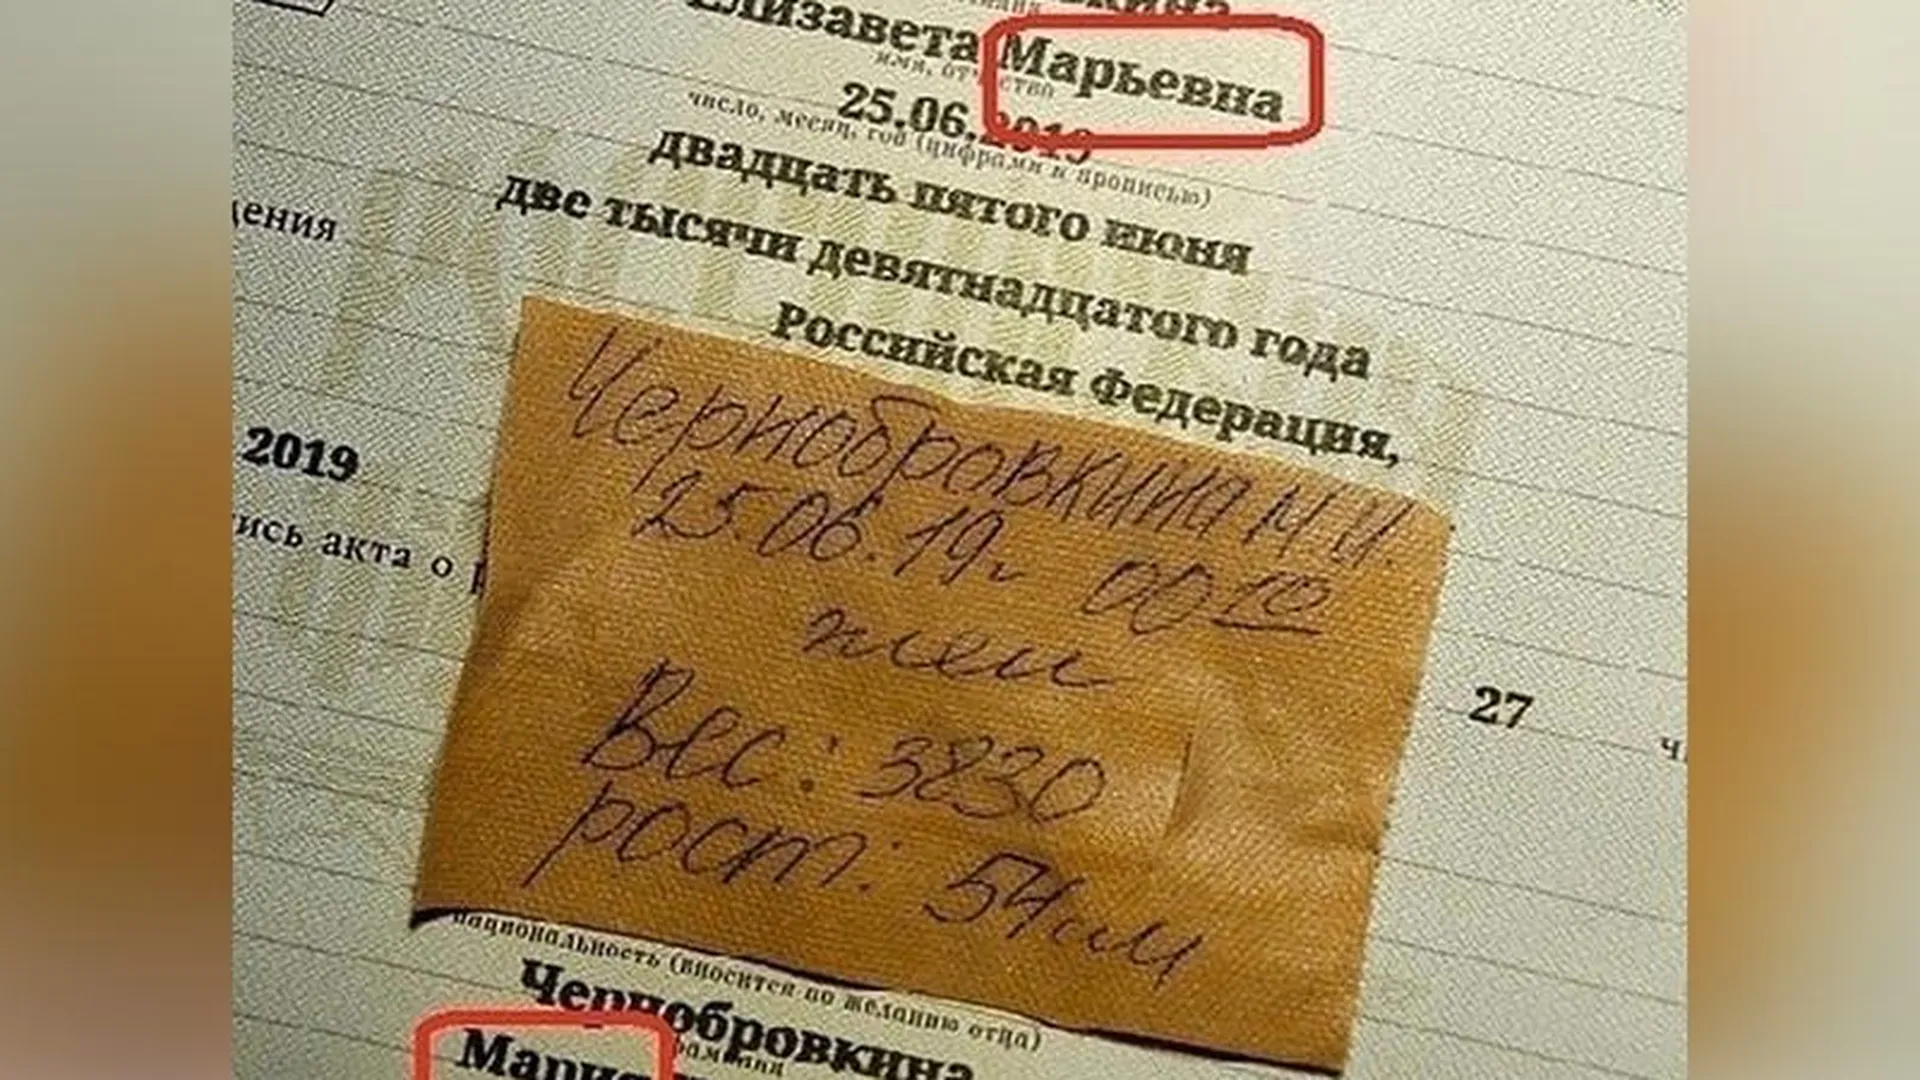 Елизавета Марьевна
имя, отчество
25.06.2019
число, месяц, год (цифрами и прописью)
двадцать пятого июня
две тысячи девятнадцатого года
Российская Федерация,
2019
акта о
Чернобровкина М.И.
25.06.19г 00 10
жен
Вес: 3830
рост: 54 см
27
национальность (вносится по желанию отца)
Чернобровкина
фамилия
Мария